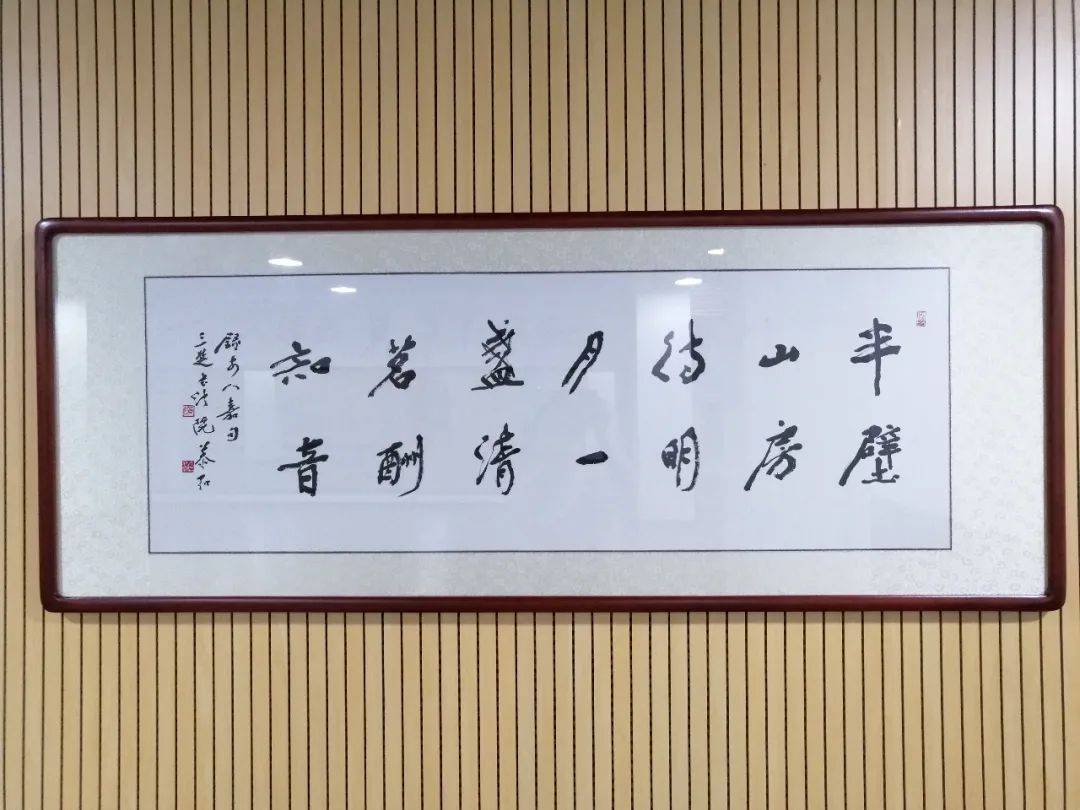 半壁
山房
待明
月一
盏清
茗酬
知音
录古人嘉句
三楚书法院